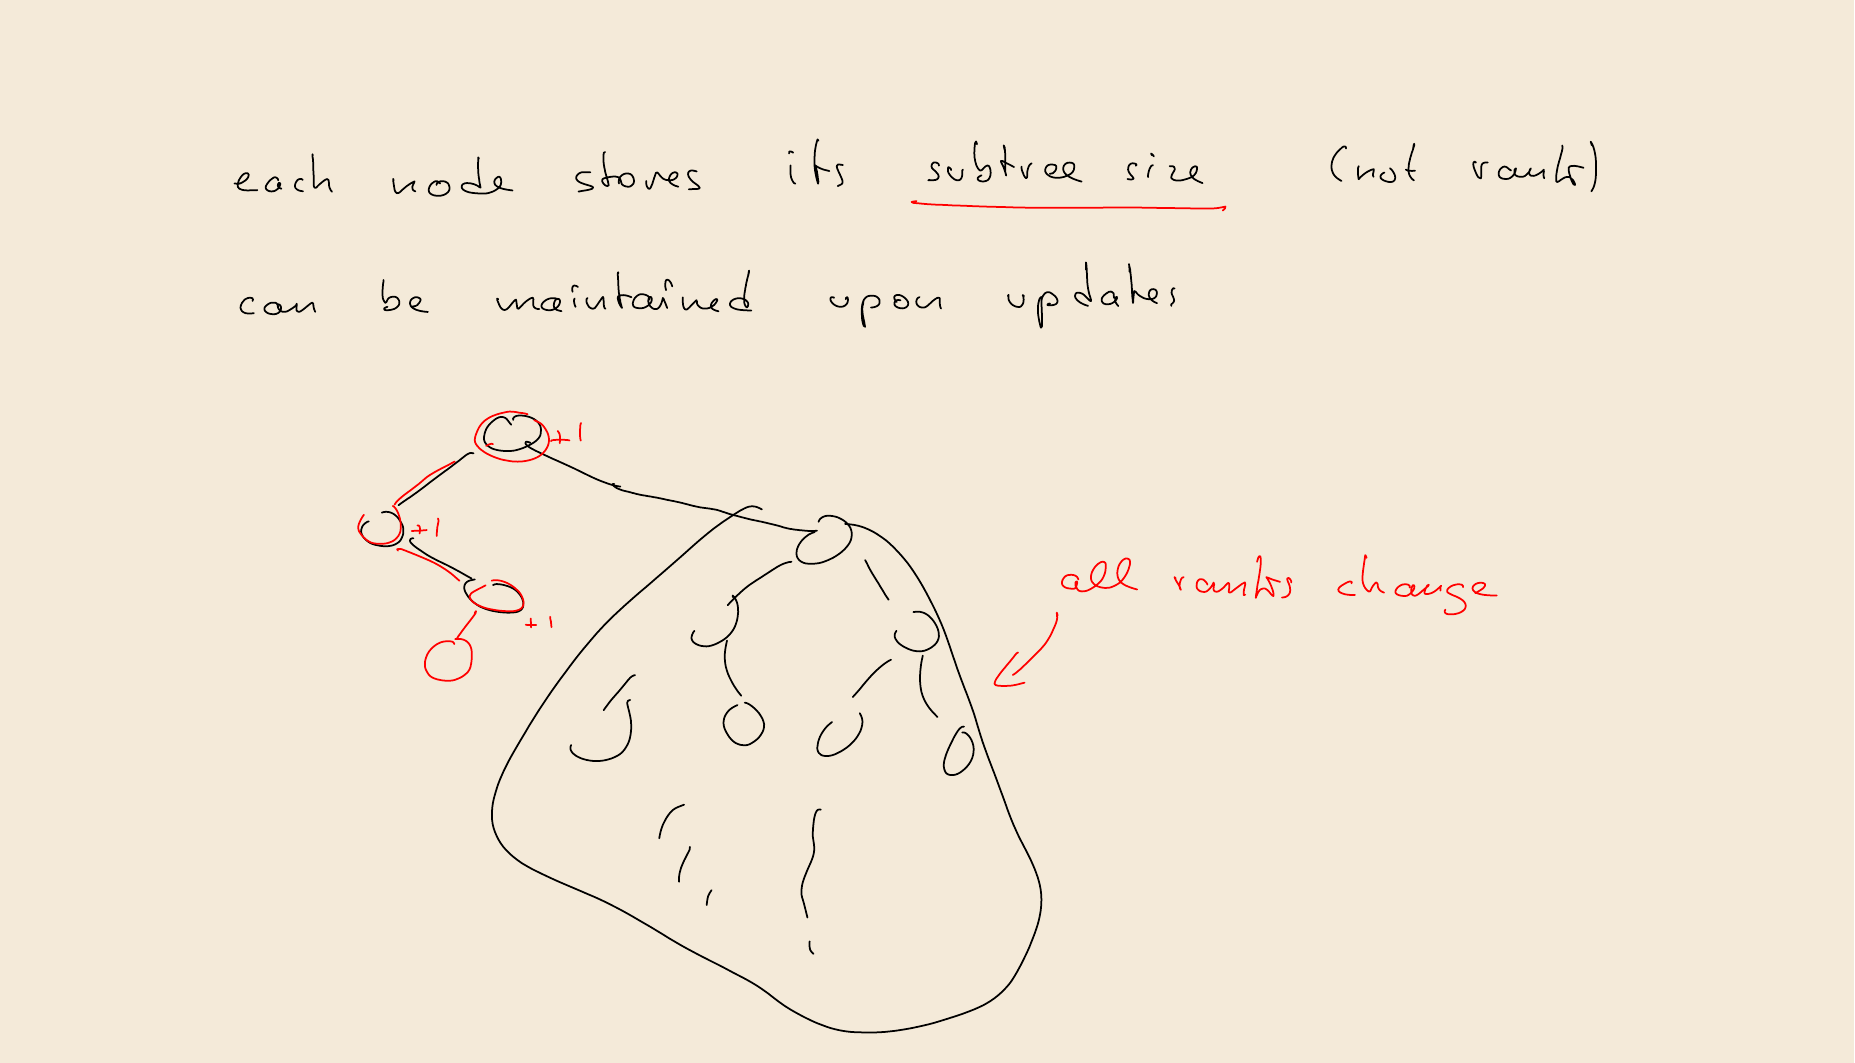 each node stores its subtree size (not rank)
can be maintained upon updates
+1
+1
+1
all ranks change